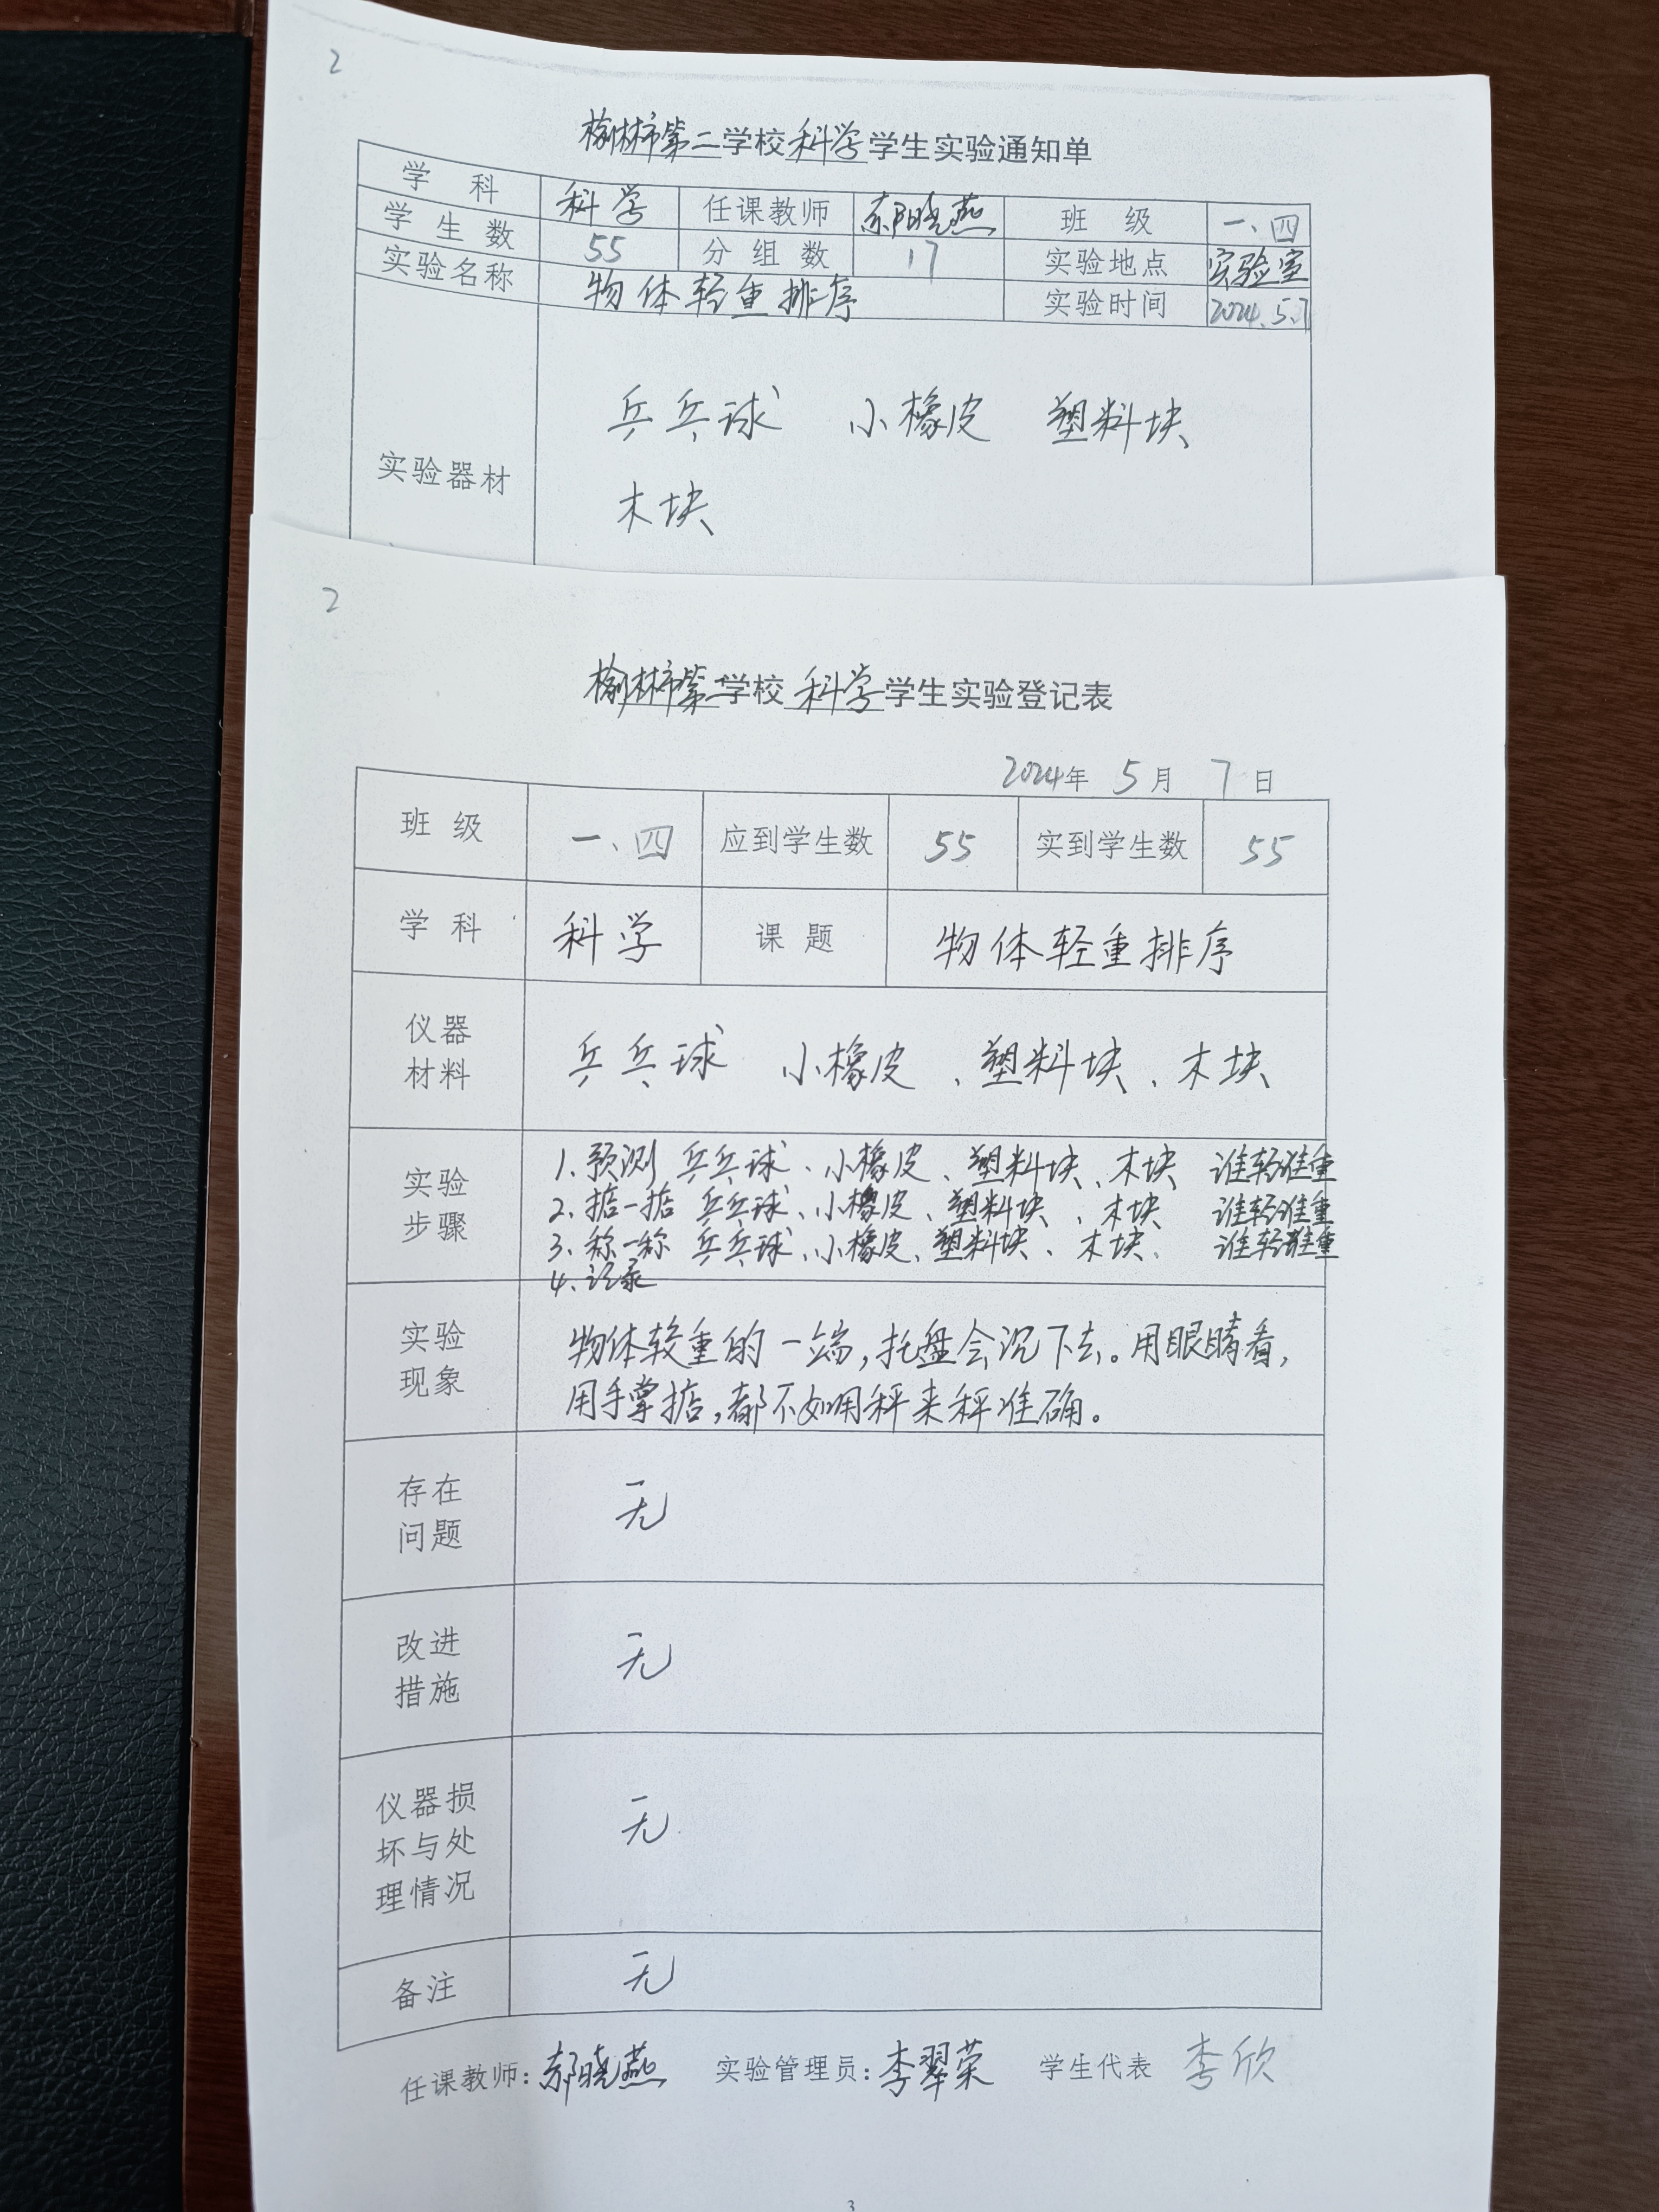 2
榆林市第二学校科学学生实验通知单
学 科 科学 任课教师 郝晓燕 班 级 一、四
学生数 55 分组数 17 实验地点 实验室
实验名称 物体轻重排序 实验时间 2024.5.7
实验器材 乒乓球 小橡皮 塑料块
木块
2
榆林市第二学校科学学生实验登记表
2024年 5月 7日
班 级 一、四 应到学生数 55 实到学生数 55
学 科 科学 课 题 物体轻重排序
仪器
材料
乒乓球 小橡皮、塑料块、木块
实验
步骤
1.预测 乒乓球、小橡皮、塑料块、木块 谁轻谁重
2.掂一掂 乒乓球、小橡皮、塑料块、木块 谁轻谁重
3.称一称 乒乓球、小橡皮、塑料块、木块、 谁轻谁重
4.记录
实验
现象
物体较重的一端,托盘会沉下去。用眼睛看,
用手掌掂,都不如用秤来秤准确。
存在
问题
无
改进
措施
无
仪器损
坏与处
理情况
无
备注 无
任课教师:郝晓燕 实验管理员:李翠荣 学生代表 李欣
3